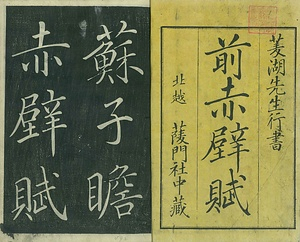 菱湖先生行書
前赤壁賦
北越 蓤門社中藏
蘇子瞻
赤壁賦